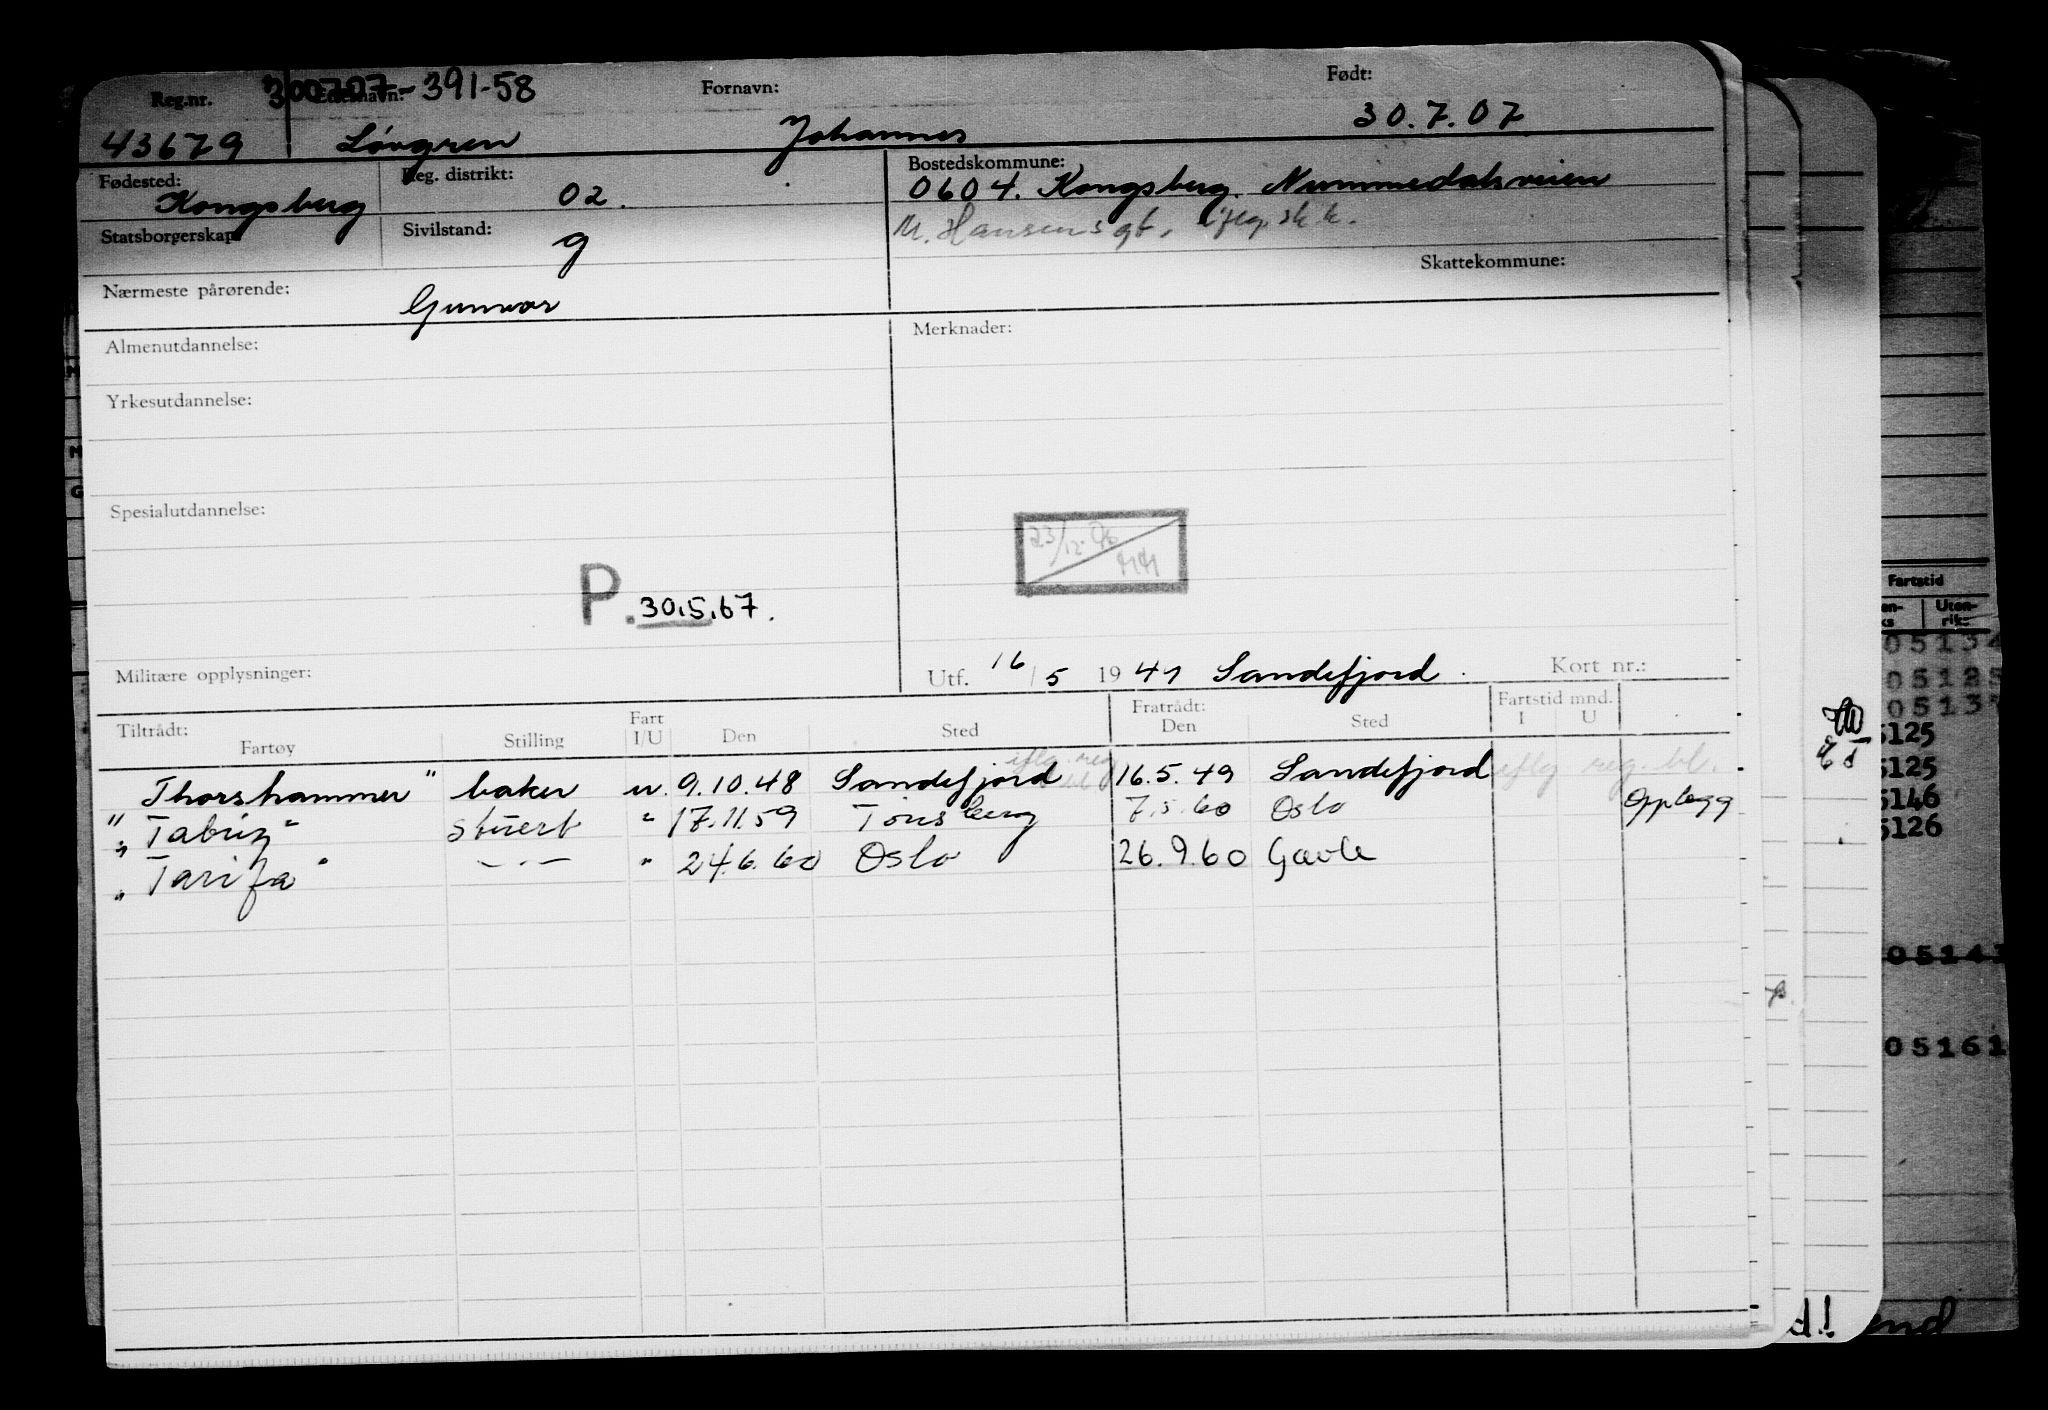 Reg.nr. 300707-391-58 Etternavn: Fornavn: Født:
43679 Løvgren Johannes 30.7.07
Fødested: Reg. distrikt: Bostedskommune:
Kongsberg 02. 0604. Kongsberg. Nummedalsveien
Statsborgerskap: Sivilstand: g M. Hansensgt.
Skattekommune:
Nærmeste pårørende: Gunvor
Almenutdannelse: Merknader:
Yrkesutdannelse:
Spesialutdannelse:
23/12-96
HH
P. 30.5.67.
Militære opplysninger: Utf. 16/5 1949 Sandefjord. Kort nr.:
Tiltrådt: Fart Fratrådt: Fartstid mnd.
Fartøy Stilling I/U Den Sted Den Sted I U
iflg. reg. bl.
"Thorshammer" baker u. 9.10.48 Sandefjord 16.5.49 Sandefjord iflg reg. bl.
"Tabriz" stuert " 17.11.59 Tønsberg 7.5.60 Oslo Opplegg
"Tarifa" — " — " 24.6.60 Oslo 26.9.60 Gävle
Fartstid
Uten-
riks
05134
05125
05137
5125
5125
5146
5126
05141
05161
d!
end